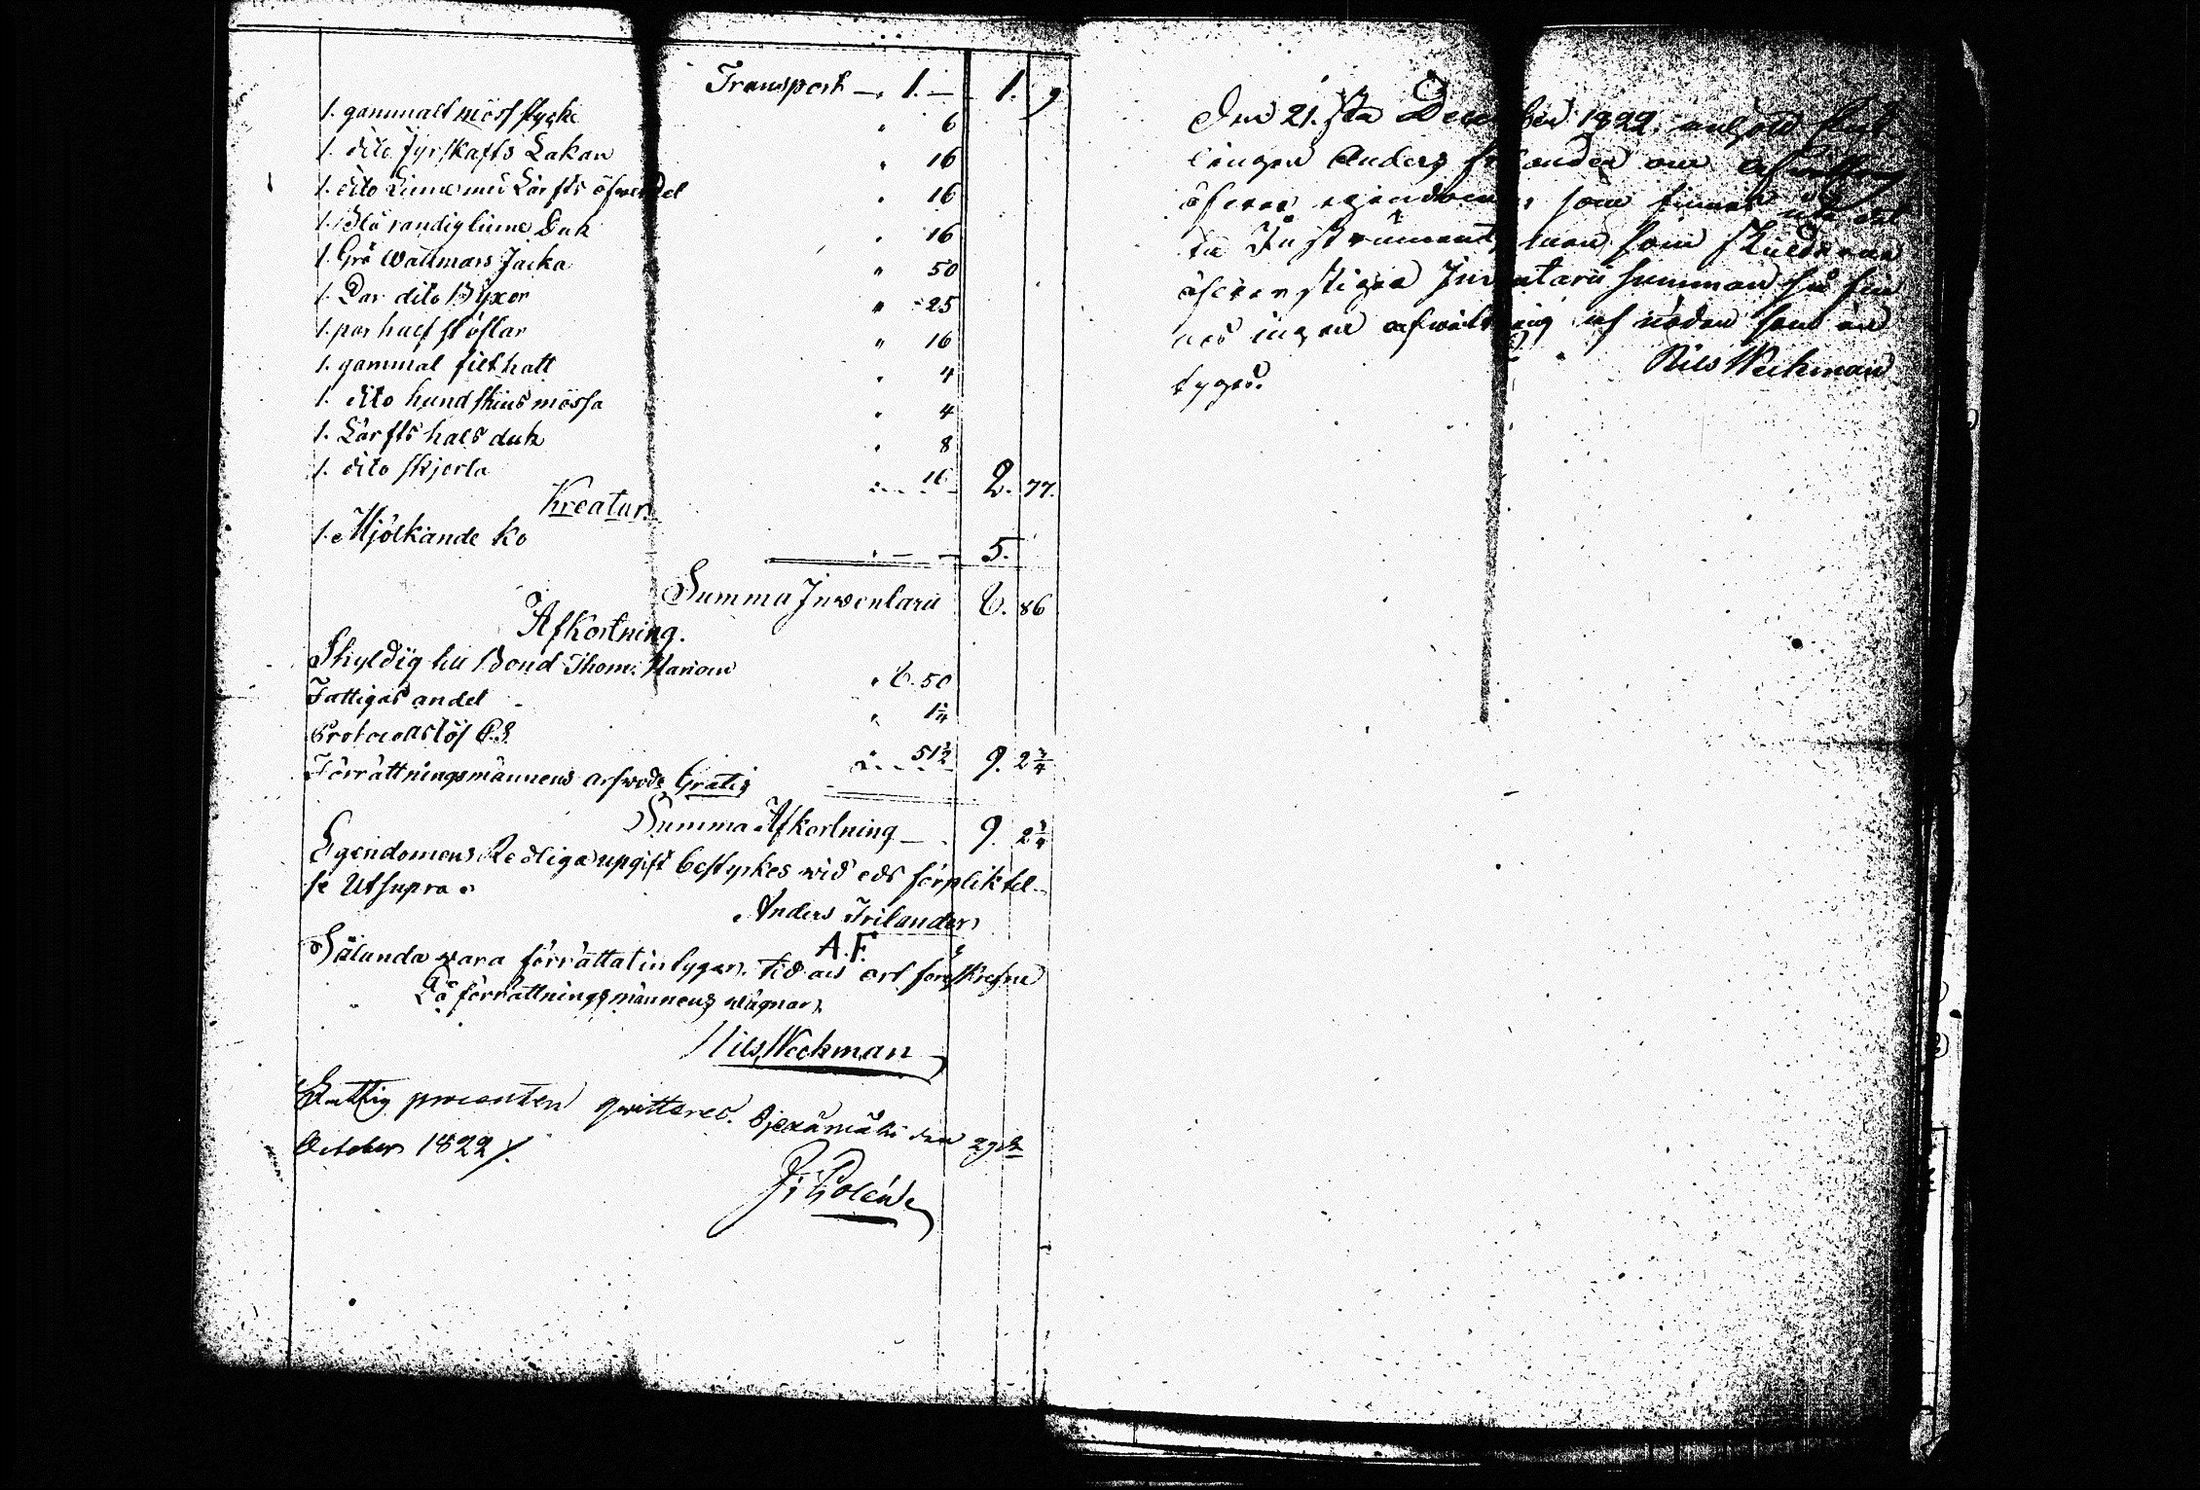 Transport — 1. — 1. 9
1. gammalt mössstycke " 6
1. dito fyrskafts Lakan " 16
1. dito Linne med Lärfts öfverdel " 16
1. Blå randig linne Duk " 16
1. Grå Wallmars Jacka " 50
1. Par dito Byxor " 25
1. par half stöflar " 16
1. gammal filt hatt " 4
1. dito hundskins mössa " 4
1. Lärfts hals duk " 8
1. dito skjorta " 16 2. 77.
Kreatur
1. Mjölkande Ko 5.
Summa Inventarii 8. 86
Afkortning.
Skyldig till Bond. Thom. " 8. 50
Fattigas andel " 1 1/4
" 51 1/2 9. 2 3/4
Förrättningsmännens arfvode Gratis
Summa Afkortning — 9. 2 3/4
Egendomens Redliga upgift bestyrkes wid eds förpliktel-
se Utsupra.
Anders Frilander
A.F.
Sålunda wara förrättat intygar. Tid och ort föreskrefne
På förrättningsmännens wägnar
Nils Weckman
Fattig procenten qvitteras. den 29de
October 1822
Den 21.sta December 1822, anhöll
Anders Frilander om afwittring
öfver egendomen som finnes
ta Instrument, men som skulderna
öfverstiga Inventarii summan så fin
nes ingen afwittring af nöden som in
tygas. Nils Weckman